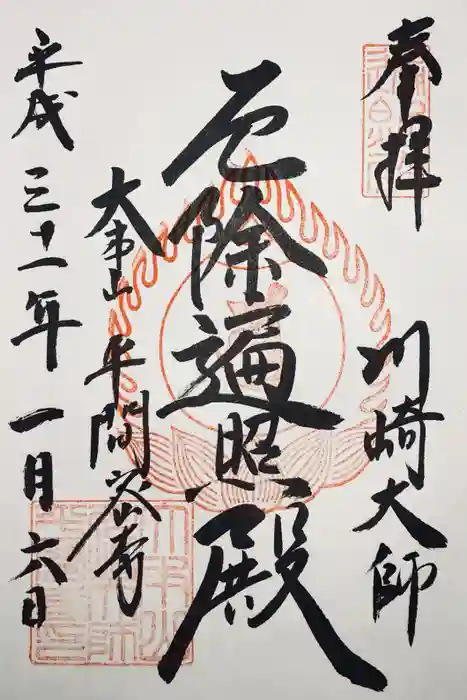 奉拝
川崎大師
厄除遍照殿
大本山
平間密寺
平成三十一年一月六日